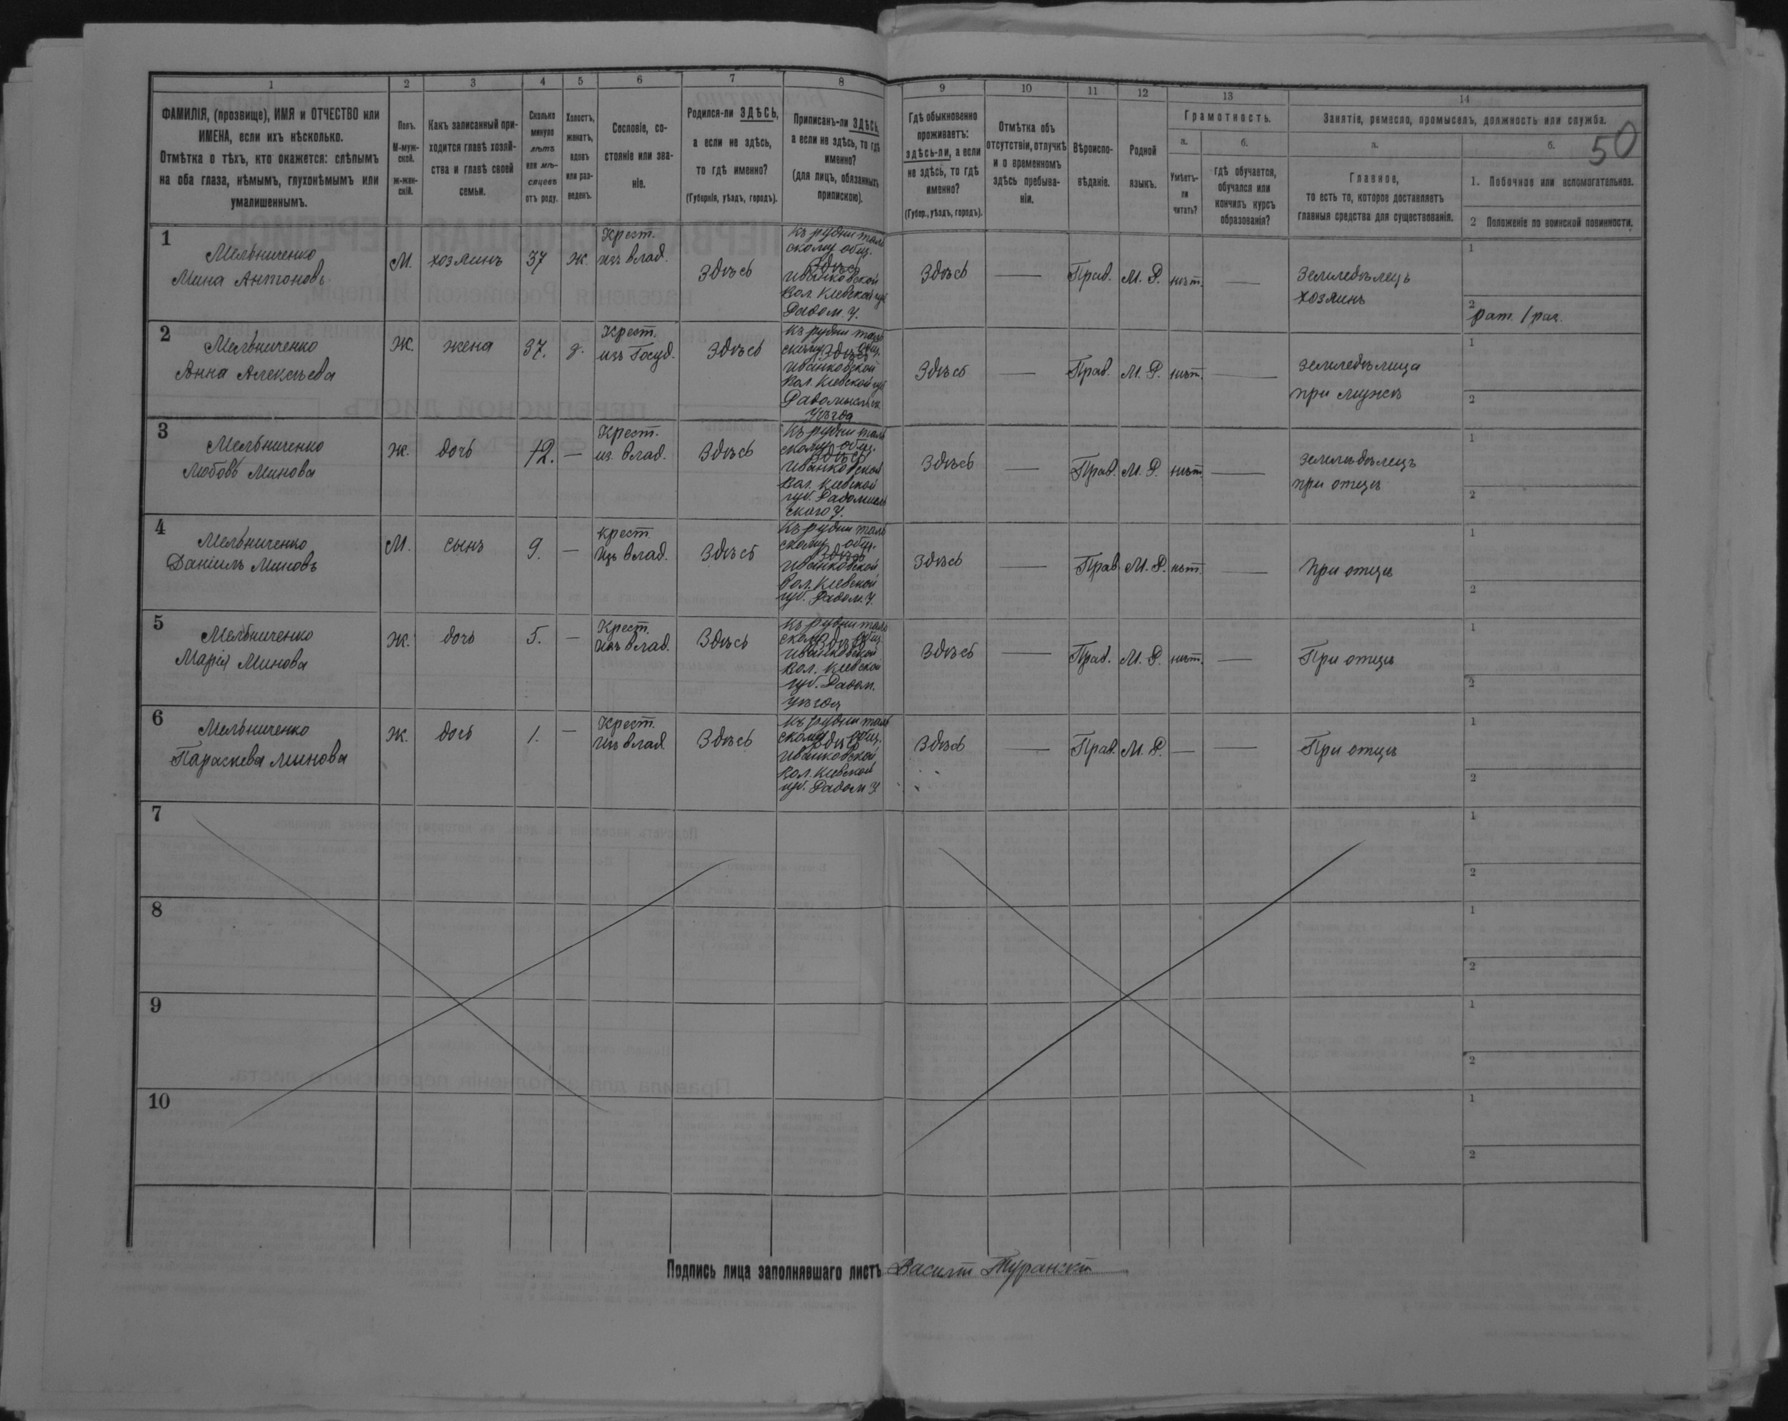 1
2
3
4
5
6
7
8
9
10
11
12
13
14
50
ФАМИЛІЯ, (прозвище), ИМЯ и ОТЧЕСТВО или
ИМЕНА, если ихъ нѣсколько.
Отмѣтка о тѣхъ, кто окажется: слѣпымъ
на оба глаза, нѣмымъ, глухонѣмымъ или
умалишеннымъ.
Полъ.
М-муж-
ской.
Ж-жен-
скій.
Какъ записанный при-
ходится главѣ хозяй-
ства и главѣ своей
семьи.
Сколько
минуло
лѣтъ
или мѣ-
сяцевъ
отъ роду.
Холостъ,
женатъ,
вдовъ
или раз-
веденъ.
Сословіе, со-
стояніе или зва-
ніе.
Родился-ли ЗДѢСЬ,
а если не здѣсь,
то гдѣ именно?
(Губернія, уѣздъ, городъ).
Приписанъ-ли ЗДѢСЬ,
а если не здѣсь, то гдѣ
именно?
(для лицъ, обязанныхъ
припискою).
Гдѣ обыкновенно
проживаетъ:
здѣсь-ли, а если
не здѣсь, то гдѣ
именно?
(Губер., уѣздъ, городъ).
Отмѣтка объ
отсутствіи, отлучкѣ
и о временномъ
здѣсь пребыва-
ніи.
Вѣроиспо-
вѣданіе.
Родной
языкъ.
Грамотность.
а.
Умѣетъ-
ли
читать?
б.
гдѣ обучается,
обучался или
кончилъ курсъ
образованія?
Занятіе, ремесло, промыселъ, должность или служба.
а.
Главное,
то есть то, которое доставляетъ
главныя средства для существованія.
б.
1. Побочное или вспомогательное.
2 Положеніе по воинской повинности.
1
Мельниченко
Мина Антоновъ
М.
хозяинъ
37
ж.
Крест.
изъ влад.
Здѣсь
Къ рудни таль
скому общ.
Здѣсь
Иванковской
Вол. Кіевской губ.
Радом. У.
Здѣсь
Прав.
М. Р.
нѣт.
Земледѣлецъ
хозяинъ
1
2
рат. 1 раз.
2
Мельниченко
Анна Алексѣева
Ж.
жена
37.
з.
Крест.
изъ Госуд.
Здѣсь
Къ рудни таль
скому общ.
Здѣсь
Иванковской
Вол. Кіевской губ.
Радомысльск.
Уѣзда
Здѣсь
Прав.
М. Р.
нѣт.
Земледѣлица
при мужѣ
1
2
3
Мельниченко
Любовь Минова
Ж.
дочь
12.
Крест.
из влад.
Здѣсь
Къ рудни таль
скому общ.
Здѣсь
Иванковской
Вол. Кіевской
губ. Радомысль
ского У.
Здѣсь
Прав.
М. Р.
нѣт
Земледѣлецъ
при отцѣ
1
2
4
Мельниченко
Даніилъ Миновъ
М.
сынъ
9.
крест.
изъ влад.
Здѣсь
Къ рудни таль
скому общ.
Здѣсь
Иванковской
Вол. Кіевской
губ. Радом. У.
Здѣсь
Прав
М. Р.
нѣт.
при отцѣ
1
2
5
Мельниченко
Марія Минова
Ж.
дочь
5.
Крест.
изъ влад.
Здѣсь
Къ рудни таль
скому общ.
Здѣсь
Иванковской
Вол. Кіевской
губ. Радом.
уѣзда
Здѣсь
Прав.
М. Р.
нѣт.
При отцѣ
1
2
6
Мельниченко
Параскева Минова
Ж.
дочь
1.
Крест.
изъ влад.
Здѣсь
Къ рудни таль
скому общ.
Здѣсь
Иванковской
Вол. Кіевской
губ. Радом У
Здѣсь
Прав.
М. Р
При отцѣ
1
2
7
1
2
8
1
2
9
1
2
10
1
2
Подпись лица заполнявшаго листъ Василій Туранскій